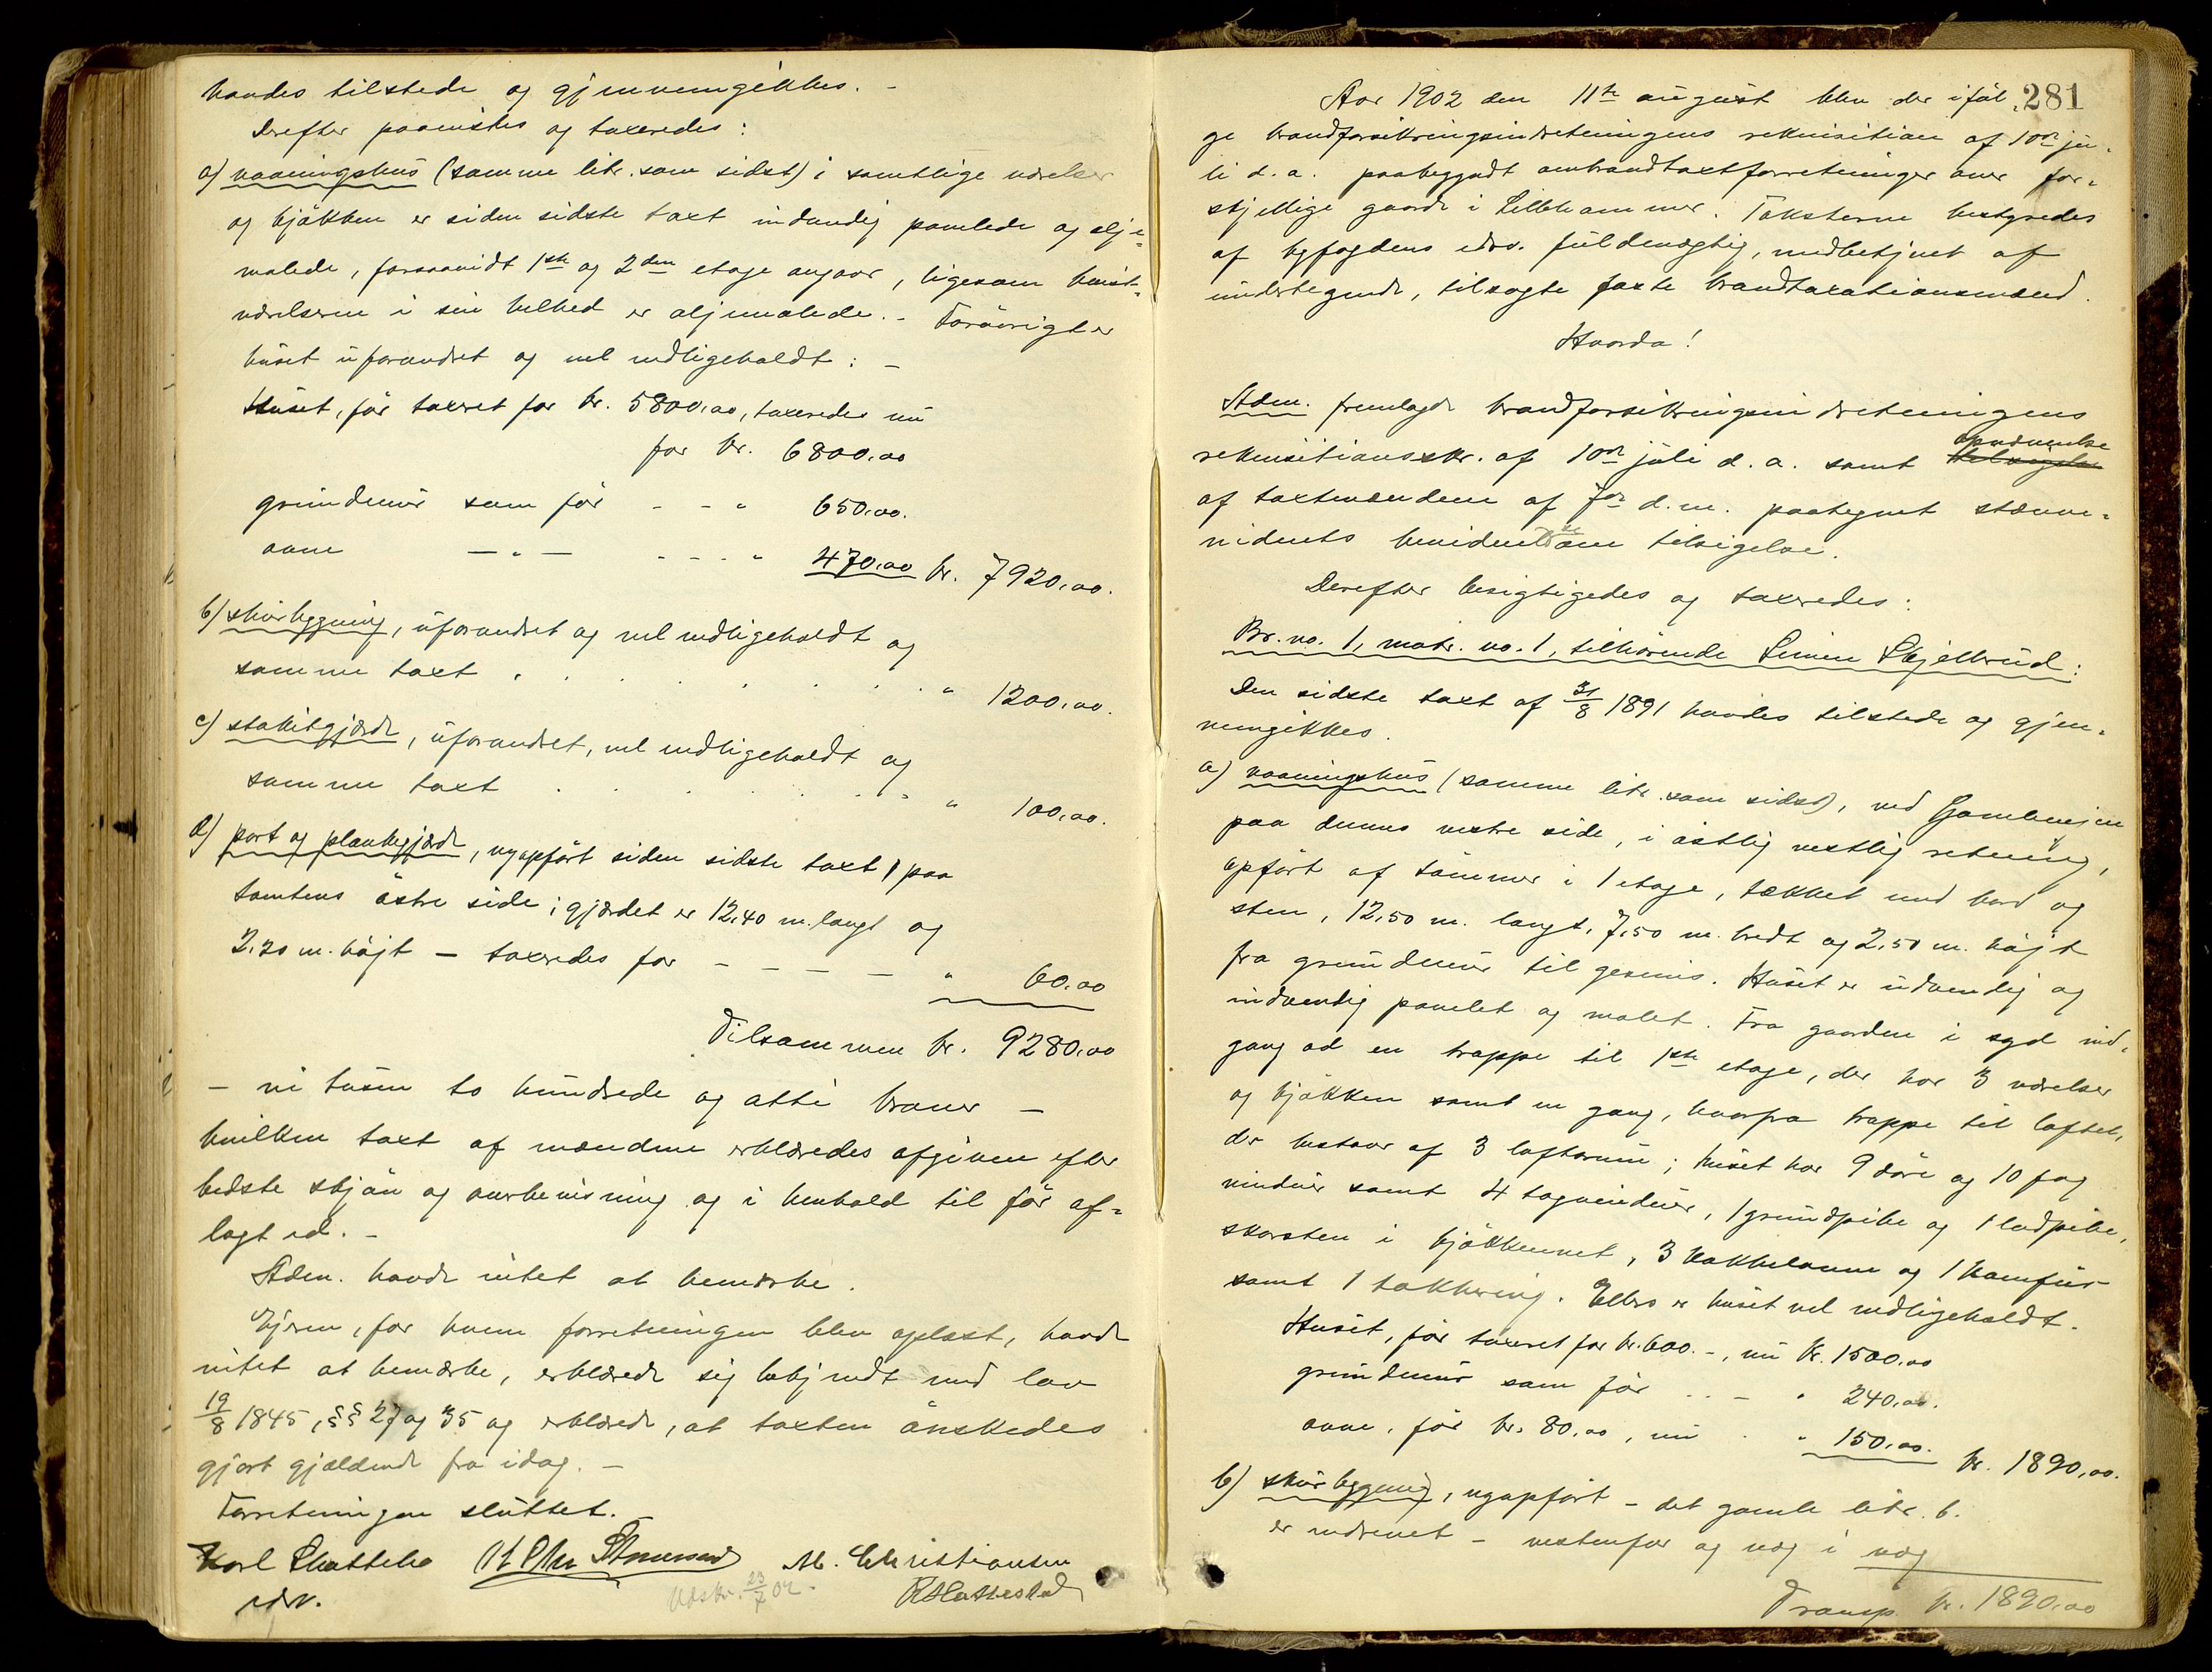 havdes tilstede og gjennemgikkes. -
Derefter paavistes og taxeredes:
a) vaaningshus (samme litr. som sidst) i samtlige værelser
og kjøkken er siden sidste taxt indvendig panelede og olje-
malede, forsaavidt 1ste og 2den etage angaar, ligesom kvist-
værelserne i sin helhed er oljemalede. - Forøvrigt er
huset uforandret og vel vedligeholdt: -
Huset, før taxeret for kr. 5800,00, taxeredes nu
for kr. 6800,00
grundmur som før - - " 650,00.
ovne — " — - - - " 470,00 kr. 7920,00.
b) skurbygning, uforandret og vel vedligeholdt og
samme taxt . . . . . . . " 1200,00.
c) stakitgjærde, uforandret, vel vedligeholdt og
samme taxt . . . . . . " 100,00.
d) port og plankegjærde, nyopført siden sidste taxt, paa
tomtens østre side; gjærdet er 12,40 m. langt og
2,20 m. højt — taxeredes for - — — — " 60,00
Tilsammen kr. 9280,00
- ni tusen to hundrede og otti kroner -
hvilken taxt af mændene erklæredes afgiven efter
bedste skjøn og overbevisning og i henhold til før af-
lagt ed. -
Adm. havde intet at bemærke.
Ejeren, for hvem forretningen blev oplæst, havde
intet at bemærke, erklærede sig bekjendt med lov
19/8 1845, §§ 27 og 35 og erklærede, at taxten ønskedes
gjort gjældende fra idag. -
Forretningen sluttet.
Karl Skattebo M. Christiansen
edsv. Udskr. 23/7 02.
281
Aar 1902 den 11te august blev der iføl-
ge brandforsikringsindretningens rekvisition af 10de ju-
li d. a. paabegyndt ombrandtaxtforretninger over for-
skjellige gaarde i Lillehammer. Taksterne bestyredes
af byfogdens edsv. fuldmægtig, medbetjent af
undertegnede, tilsagte faste brandtaxationsmænd.
Hvorda!
Adm. fremlagde brandforsikringsindretningens
rekvisitionsskr. af 10de juli d. a. samt opnævnelse
af taxtmændene af 7de d. m. paategnet stævne-
vidnets bevidnelse om tilsigelse.
Derefter besigtigedes og taxeredes:
Br. no. 1, matr. no. 1, tilhørende Simen Skjelbrud:
Den sidste taxt af 31/8 1891 havdes tilstede og gjen-
nemgikkes.
a) vaaningshus (samme litr. som sidst), ved Gamlevejen
paa dennes vestre side, i østlig vestlig retning,
opført af tømmer i 1 etage, tækket med bord og
sten, 12,50 m. langt, 7,50 m. bredt og 2,50 m. højt
fra grundmur til gesims. Huset er udvendig og
indvendig panelet og malet. Fra gaarden i syd ind-
gang ad en trappe til 1ste etage, der har 3 værelser
og kjøkken samt en gang, hvorfra trappe til loftet,
der bestaar af 3 loftsrum; huset har 9 døre og 10 fag
vinduer samt 4 tagvinduer, 1 grundpibe og 1 ludpibe,
skorsten i kjøkkenet, 3 kakkelovne og 1 komfur
samt 1 takkering. Ellers er huset vel vedligeholdt.
Huset, før taxeret for kr. 600.-, nu kr. 1500,00
grundmur som før . . - " 240,00.
ovne, før kr. 80,00, nu . " 150,00. kr. 1890,00.
b) skurbygning, nyopført - det gamle litr. b.
er nedrevet - vestenfor og væg i væg
Transp. kr. 1890,00